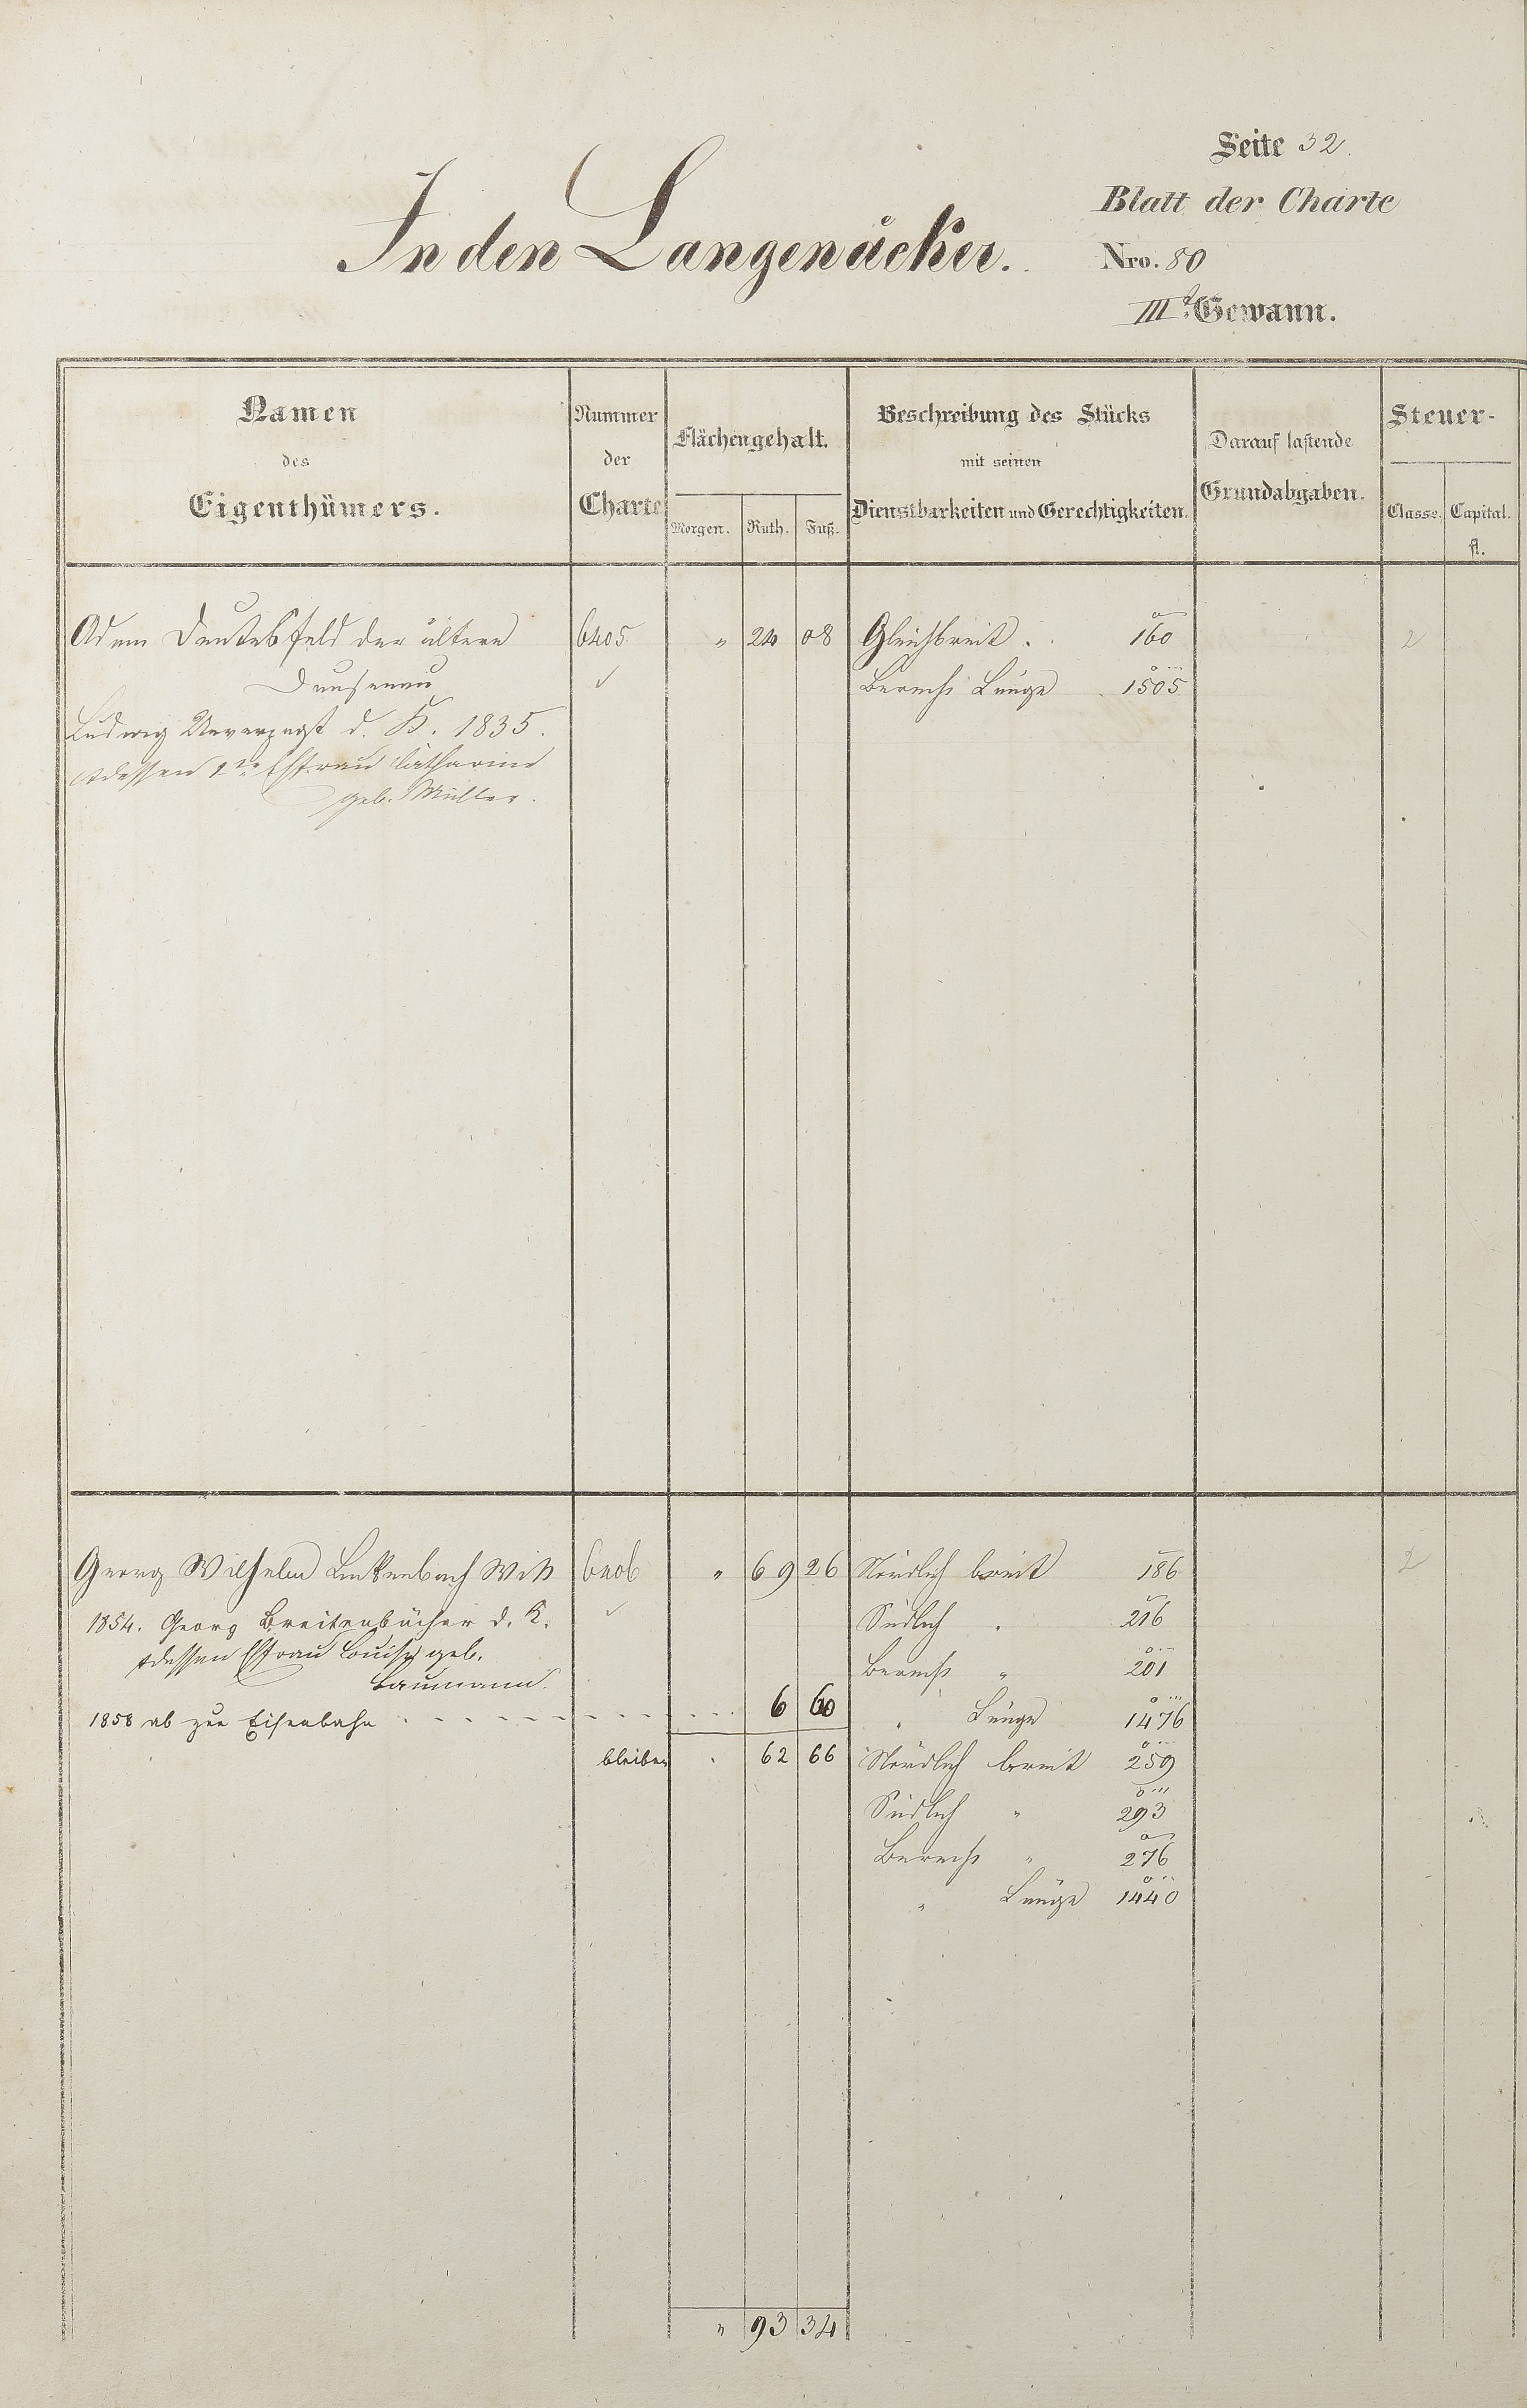 Seite 32.
In den Langenäcker.
Blatt der Charte
Nro. 80
III.te Gewann.
Namen des Eigenthümers.
Nummer der Charte
Flächengehalt.
Morgen. Ruth. Fuß.
Beschreibung des Stücks mit seinen Dienstbarkeiten und Gerechtigkeiten.
Darauf lastende Grundabgaben.
Steuer-
Classe. Capital. fl.
Adam der ältere 6405 " 24 08 Gleichbreit . 160 2
Dausenau ✓ Berechs Länge 1505
Ludwig Unverzagt d. K. 1835.
& dessen 2te Ehefrau Catharine
geb. Müller.
Georg Wilhelm Linkenbach Witt 6406 " 69 26 Nördlich breit 186 2
1854. Georg Breitenbücher d. K. ✓ Südlich . 216
& dessen Ehefrau Louise geb. Berechs " 201
Baumann.
1858 ab zur Eisenbahn 6 60 " Länge 1476
bleiben . 62 66 Nördlich breit 259
Südlich " 293
Berechs " 276
" Länge 1440
" 93 34